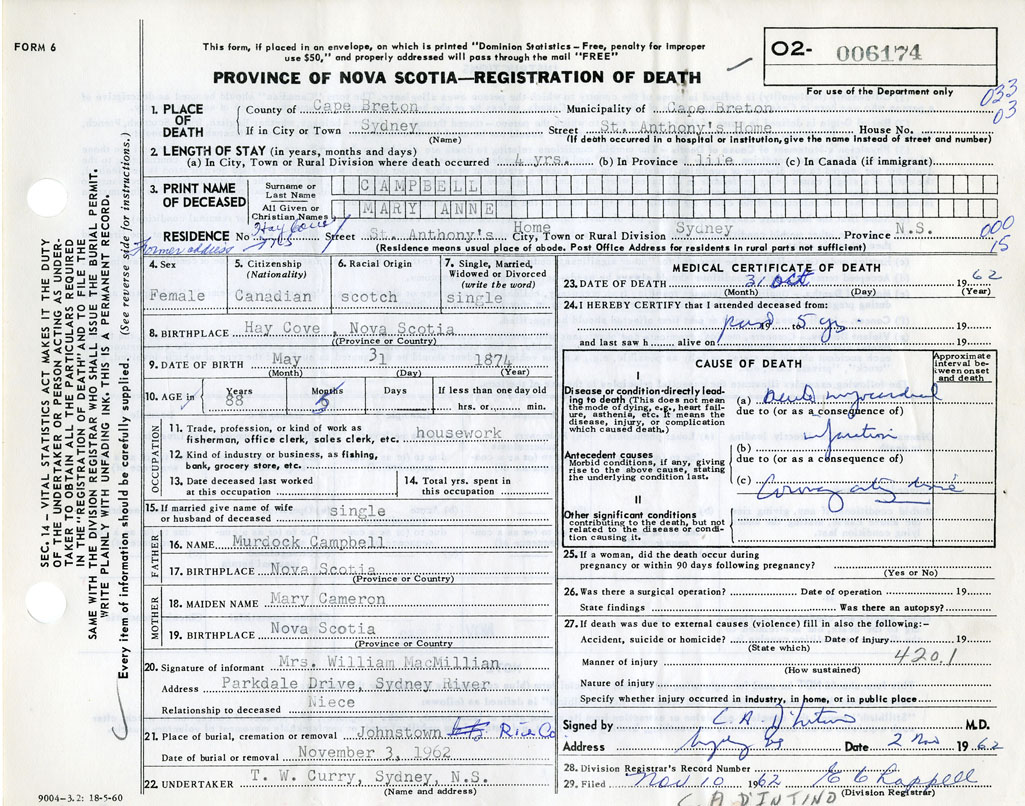 FORM 6
This form, if placed in an envelope, on which is printed "Dominion Statistics – Free, penalty for improper
use $50," and properly addressed will pass through the mail "FREE"
O2- 006174
PROVINCE OF NOVA SCOTIA—REGISTRATION OF DEATH
For use of the Department only
033
03
1. PLACE OF DEATH
County of Cape Breton Municipality of Cape Breton
If in City or Town Sydney Street St. Anthony's Home House No.
(Name) (If death occurred in a hospital or institution, give the name instead of street and number)
2. LENGTH OF STAY (in years, months and days)
(a) In City, Town or Rural Division where death occurred 4 yrs. (b) In Province life (c) In Canada (if immigrant)
3. PRINT NAME OF DECEASED
Surname or Last Name CAMPBELL
All Given or Christian Names MARY ANNE
Former address Hay Cove
RESIDENCE No. Street St. Anthony's Home City, Town or Rural Division Sydney Province N.S.
(Residence means usual place of abode. Post Office Address for residents in rural parts not sufficient)
000
15
4. Sex
Female
5. Citizenship (Nationality)
Canadian
6. Racial Origin
scotch
7. Single, Married, Widowed or Divorced (write the word)
single
8. BIRTHPLACE Hay Cove, Nova Scotia
(Province or Country)
9. DATE OF BIRTH May 31 1874
(Month) (Day) (Year)
10. AGE in Years Months Days If less than one day old
88 5 hrs. or min.
OCCUPATION
11. Trade, profession, or kind of work as fisherman, office clerk, sales clerk, etc. housework
12. Kind of industry or business, as fishing, bank, grocery store, etc.
13. Date deceased last worked at this occupation
14. Total yrs. spent in this occupation
15. If married give name of wife or husband of deceased single
FATHER
16. NAME Murdock Campbell
17. BIRTHPLACE Nova Scotia
(Province or Country)
MOTHER
18. MAIDEN NAME Mary Cameron
19. BIRTHPLACE Nova Scotia
(Province or Country)
20. Signature of informant Mrs. William MacMillian
Address Parkdale Drive, Sydney River
Relationship to deceased Niece
21. Place of burial, cremation or removal Johnstown Rich Co
Date of burial or removal November 3, 1962
22. UNDERTAKER T. W. Curry, Sydney, N.S.
(Name and address)
MEDICAL CERTIFICATE OF DEATH
23. DATE OF DEATH 31 Oct 1962
(Month) (Day) (Year)
24. I HEREBY CERTIFY that I attended deceased from:
past 5 yrs 19
and last saw h alive on 19
CAUSE OF DEATH
Approximate interval between onset and death
I
Disease or condition directly leading to death (This does not mean the mode of dying, e.g., heart failure, asthenia, etc. It means the disease, injury, or complication which caused death.)
(a) Acute myocardial
due to (or as a consequence of)
infarction
Antecedent causes
Morbid conditions, if any, giving rise to the above cause, stating the underlying condition last.
(b)
due to (or as a consequence of)
(c) Coronary artery
II
Other significant conditions
contributing to the death, but not related to the disease or condition causing it.
25. If a woman, did the death occur during pregnancy or within 90 days following pregnancy?
(Yes or No)
26. Was there a surgical operation? Date of operation 19
State findings Was there an autopsy?
27. If death was due to external causes (violence) fill in also the following:–
Accident, suicide or homicide? Date of injury 19
(State which)
420.1
Manner of injury
(How sustained)
Nature of injury
Specify whether injury occurred in industry, in home, or in public place
Signed by C. A. D'Intino M.D.
Address Sydney NS Date 2 Nov 1962
28. Division Registrar's Record Number
29. Filed Nov 10 1962 E C Chappell
(Division Registrar)
C. A D'INTINO
9004–3.2: 18-5-60
SEC. 14 – VITAL STATISTICS ACT MAKES IT THE DUTY
OF THE UNDERTAKER OR PERSON ACTING AS UNDERTAKER TO OBTAIN ALL THE PARTICULARS REQUIRED
IN THE "REGISTRATION OF DEATH" AND TO FILE THE
SAME WITH THE DIVISION REGISTRAR WHO SHALL ISSUE THE BURIAL PERMIT.
WRITE PLAINLY WITH UNFADING INK. THIS IS A PERMANENT RECORD.
Every item of information should be carefully supplied. (See reverse side for instructions.)